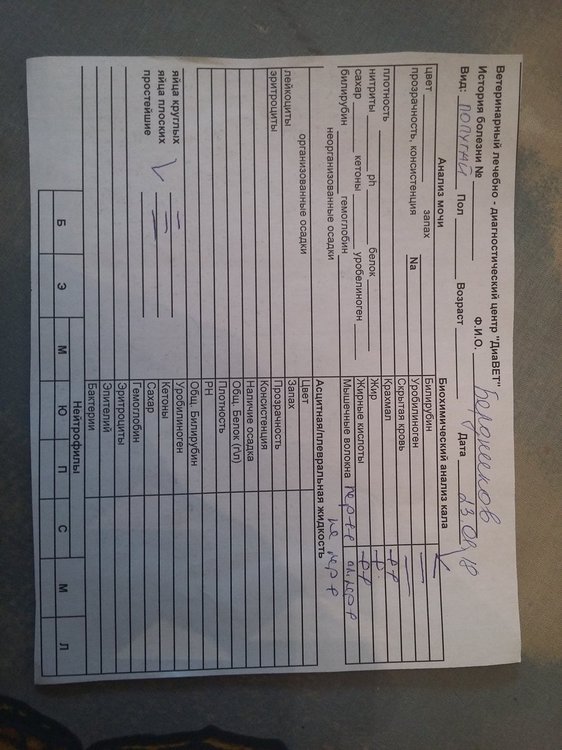 Ветеринарный лечебно - диагностический центр "ДиаВЕТ"
История болезни № Ф.И.О.
Вид: ПОПУГАЙ Пол Возраст Дата 23.09.18
Анализ мочи
цвет запах
прозрачность, консистенция Na
плотность
нитриты ph белок
сахар кетоны уробелиноген
билирубин гемоглобин
неорганизованные осадки
организованные осадки
лейкоциты
эритроциты
яйца круглых –
яйца плоских –
простейшие –
Биохимический анализ кала
Билирубин –
Уробилиноген –
Скрытая кровь
Крахмал ++
Жир +
Жирные кислоты ++
Мышечные волокна пер++
не пер +
Асцитная/плевральная жидкость
Цвет
Запах
Прозрачность
Консистенция
Наличие осадка
Общ. Белок (г\л)
Плотность
PH
Общ. Билирубин
Уробилиноген
Кетоны
Сахар
Гемоглобин
Эритроциты
Эпителий
Бактерии
Нейтрофилы
Б Э М Ю П С М Л